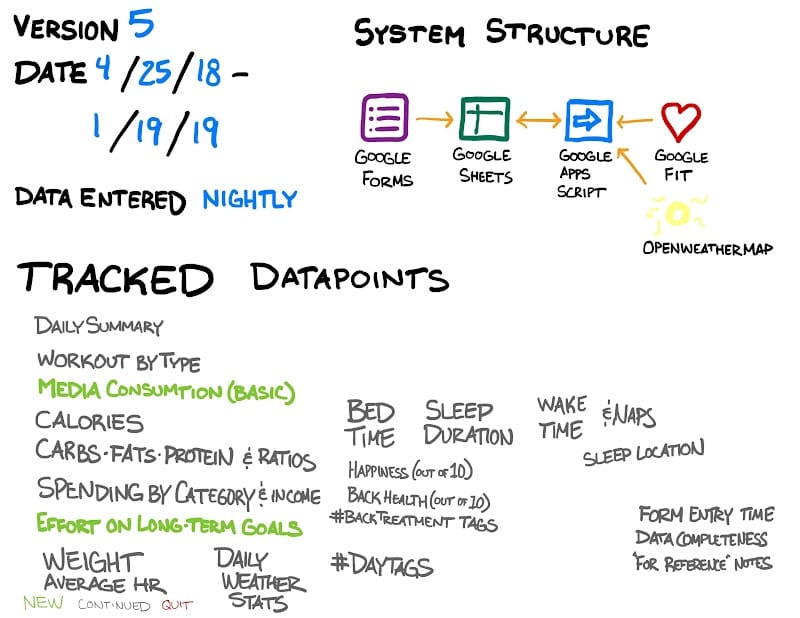 VERSION 5
DATE 4/25/18 -
1/19/19
DATA ENTERED NIGHTLY
SYSTEM STRUCTURE
GOOGLE FORMS
GOOGLE SHEETS
GOOGLE APPS SCRIPT
GOOGLE FIT
OPENWEATHERMAP
TRACKED DATAPOINTS
DAILY SUMMARY
WORKOUT BY TYPE
MEDIA CONSUMTION (BASIC)
CALORIES
CARBS·FATS·PROTEIN & RATIOS
SPENDING BY CATEGORY & INCOME
EFFORT ON LONG-TERM GOALS
WEIGHT
AVERAGE HR
DAILY WEATHER STATS
NEW CONTINUED QUIT
BED TIME
SLEEP DURATION
WAKE TIME
& NAPS
SLEEP LOCATION
HAPPINESS (OUT OF 10)
BACK HEALTH (OUT OF 10)
#BACKTREATMENT TAGS
#DAYTAGS
FORM ENTRY TIME
DATA COMPLETENESS
"FOR REFERENCE" NOTES